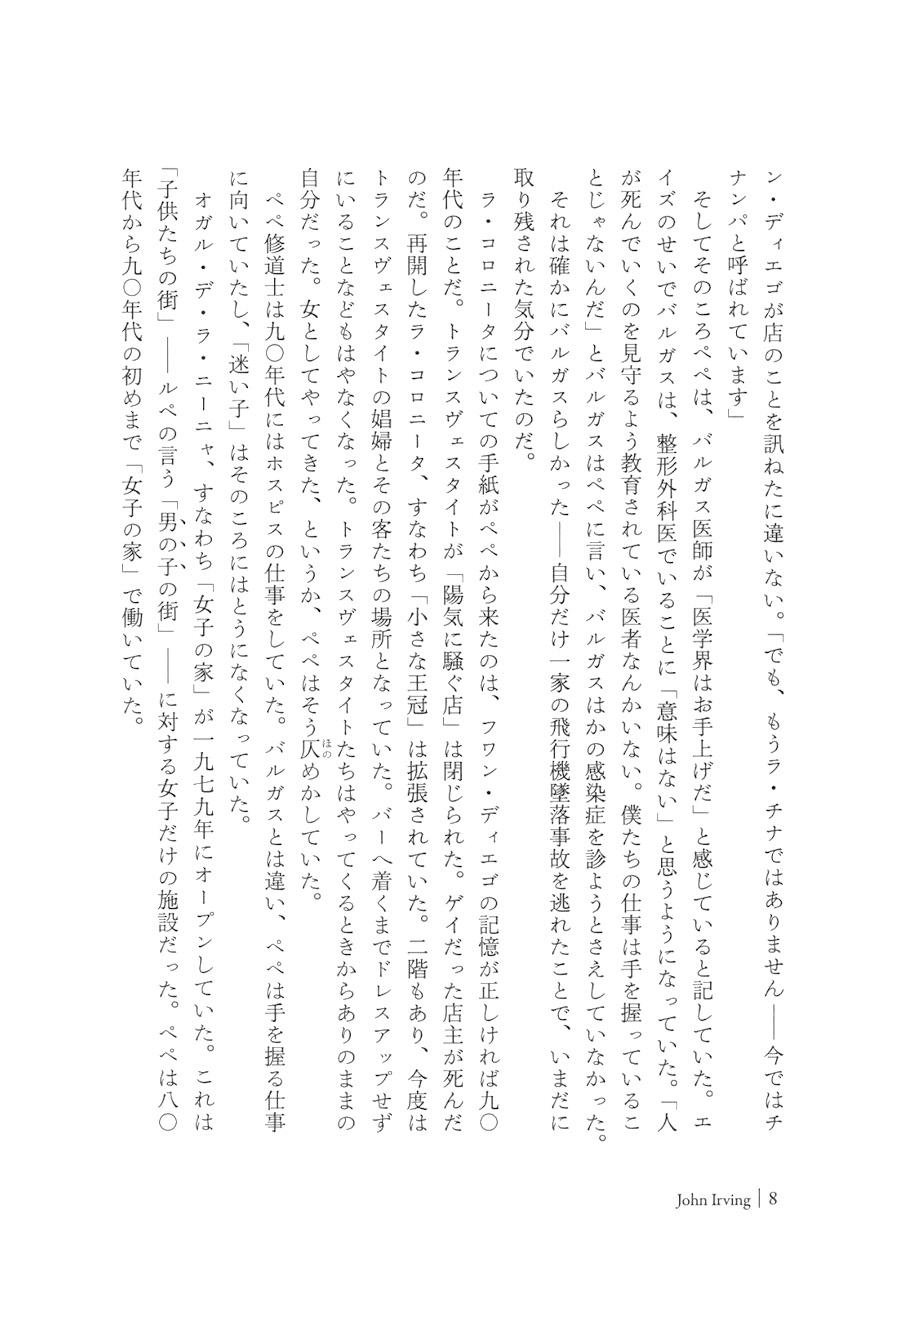 ン・ディエゴが店のことを訊ねたに違いない。「でも、もうラ・チナではありません――今ではチ
ナンパと呼ばれています」
　そしてそのころペペは、バルガス医師が「医学界はお手上げだ」と感じていると記していた。エ
イズのせいでバルガスは、整形外科医でいることに「意味はない」と思うようになっていた。「人
が死んでいくのを見守るよう教育されている医者なんかいない。僕たちの仕事は手を握っているこ
とじゃないんだ」とバルガスはペペに言い、バルガスはかの感染症を診ようとさえしていなかった。
　それは確かにバルガスらしかった――自分だけ一家の飛行機墜落事故を逃れたことで、いまだに
取り残された気分でいたのだ。
　ラ・コロニータについての手紙がペペから来たのは、フワン・ディエゴの記憶が正しければ九〇
年代のことだ。トランスヴェスタイトが「陽気に騒ぐ店」は閉じられた。ゲイだった店主が死んだ
のだ。再開したラ・コロニータ、すなわち「小さな王冠」は拡張されていた。二階もあり、今度は
トランスヴェスタイトの娼婦とその客たちの場所となっていた。バーへ着くまでドレスアップせず
にいることなどもはやなくなった。トランスヴェスタイトたちはやってくるときからありのままの
自分だった。女としてやってきた、というか、ペペはそう仄めかしていた。
ほの
　ペペ修道士は九〇年代にはホスピスの仕事をしていた。バルガスとは違い、ペペは手を握る仕事
に向いていたし、「迷い子」はそのころにはとうになくなっていた。
　オガル・デ・ラ・ニーニャ、すなわち「女子の家」が一九七九年にオープンしていた。これは
「子供たちの街」――ルペの言う「男の子の街」――に対する女子だけの施設だった。ペペは八〇
年代から九〇年代の初めまで「女子の家」で働いていた。
John Irving | 8